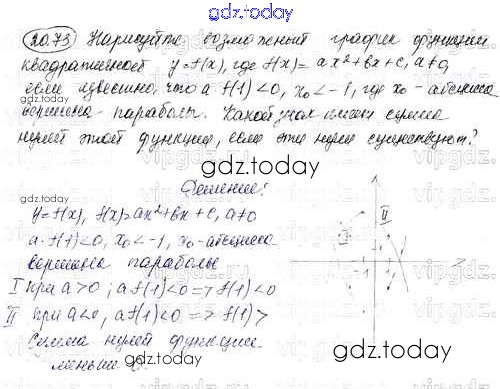 gdz.today
20.73 Нарисуйте возможный график функции
квадратичной y=f(x), где f(x)= ax²+bx+c, a≠0,
если известно, что a f(1)<0, x₀<-1, где x₀ - абсцисса
вершины параболы. Какой знак имеет сумма
нулей этой функции, если эти нули существуют?
gdz.today
Решение:
y=f(x), f(x)=ax²+bx+c, a≠0
a·f(1)<0, x₀<-1, x₀-абсцисса
вершины параболы
I при a>0; a f(1)<0 => f(1)<0
II при a<0, a f(1)<0 => f(1)>
Сумма нулей функции
меньше 0.
I
II
-1
1
gdz.today
gdz.today
gdz.today
gdz.today